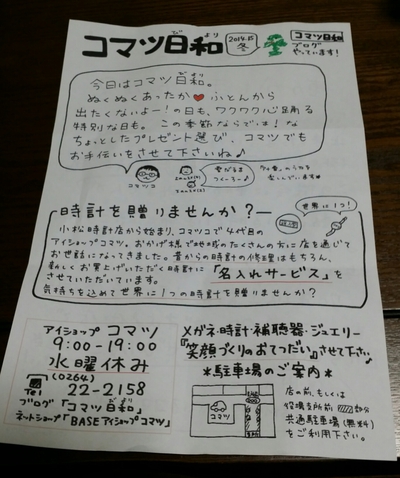 コマツ日和
びより
2014.15
冬
コマツ日和
ブログ
やっています!
今日はコマツ日和。
ぬくぬくあったか♥ふとんから
出たくないよー!の日も、ワクワク心踊る
特別な日も。この季節ならでは!な
ちょっとしたプレゼント選び、コマツでも
お手伝いをさせて下さいね♪
時計を贈りませんか?
世界に1つ!
小松時計店から始まり、コマツコで4代目の
アイショップコマツ。おかげ様で地域のたくさんの方に店を通じて
お世話になってきました。昔からの時計の修理はもちろん、
新しくお買上げいただく時計に「名入れサービス」を
させていただいています。
気持ちを込めて世界に1つの時計を贈りませんか?
アイショップ コマツ
9:00-19:00
水曜休み
(0264)
Tel 22-2158
ブログ「コマツ日和」
ネットショップ「BASEアイショップコマツ」
メガネ・時計・補聴器・ジュエリー
『笑顔づくりのおてつだい』させて下さい♪
*駐車場のご案内*
コマツ
店の前、もしくは
役場支所前 部分
共通駐車場(無料)
をご利用下さい。